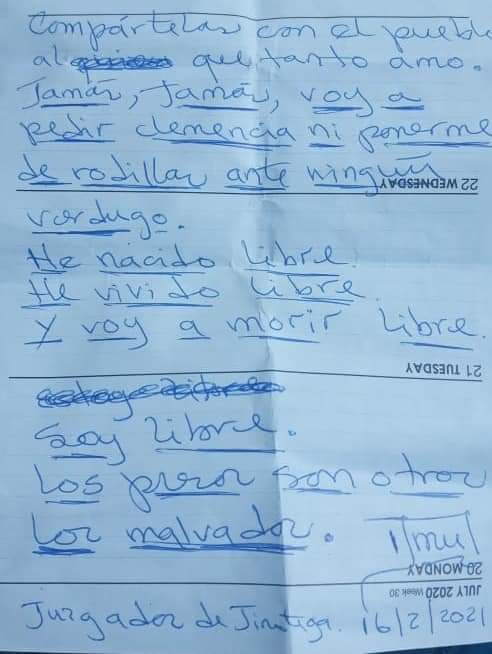 Compártelas con el pueblo
al que tanto amo.
Jamás, Jamás, voy a
pedir clemencia ni ponerme
de rodillas ante ningún
22 WEDNESDAY
verdugo.
He nacido libre.
He vivido libre.
Y voy a morir libre.
21 TUESDAY
Soy libre.
Los presos son otros
los malvados.
20 MONDAY
JULY 2020 Week 30
Juzgados de Jinotega. 16/2/2021